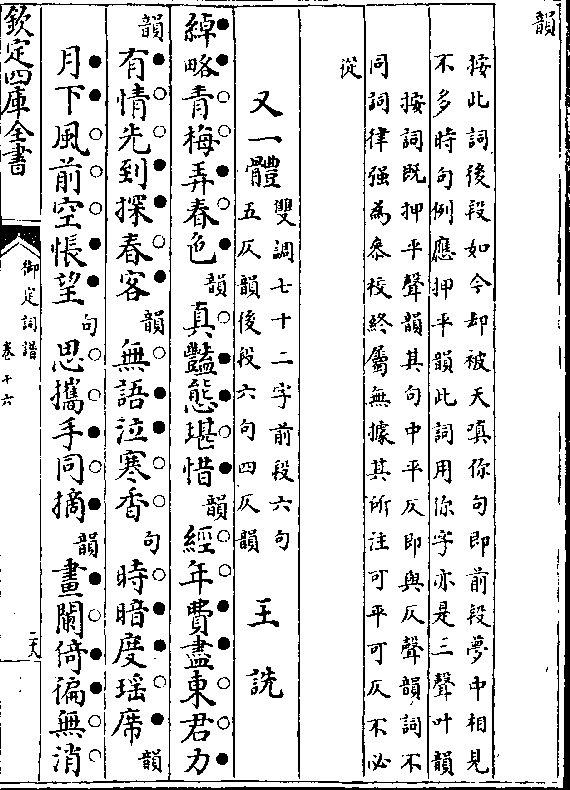 韻
按此詞後段如今却被天嗔你句即前段夢中相見
不多時句例應押平韻此詞用你字亦是三聲叶韻
按詞既押平聲韻其句中平仄即與仄聲韻詞不
同詞律强為參校終屬無據其所注可平可仄不必
從
又一體 雙調七十二字前段六句
五仄韻後段六句四仄韻 王詵
綽略青梅弄春色韻真豔態堪惜韻經年費盡東君力
韻有情先到探春客韻無語泣寒香句時暗度瑶席韻
月下風前空悵望句思攜手同摘韻畫闌倚徧無消
欽定四庫全書
御定詞譜
卷十六